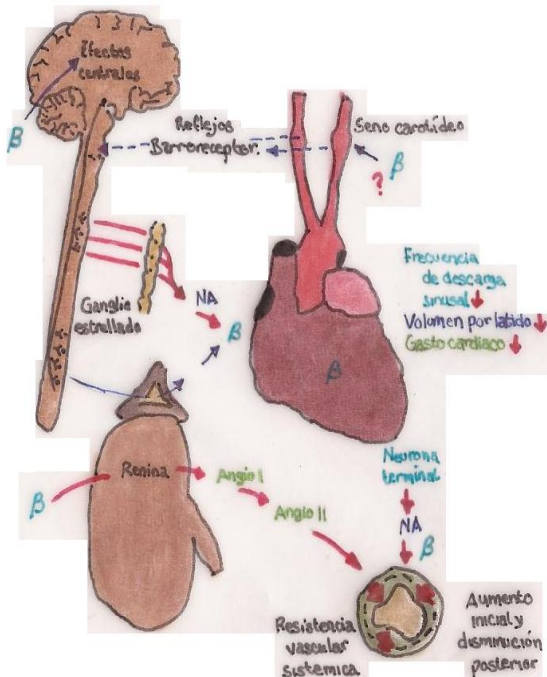 Efectos
centrales
β
Reflejos
Barroreceptor.
Seno carotídeo
β
?
Ganglio
estrellado
NA
β
Frecuencia
de descarga
sinusal
Volumen por latido
Gasto cardiaco
β
Renina
β
Angio I
Angio II
Neurona
terminal
NA
β
Resistencia
vascular
sistemica
Aumento
inicial y
disminución
posterior